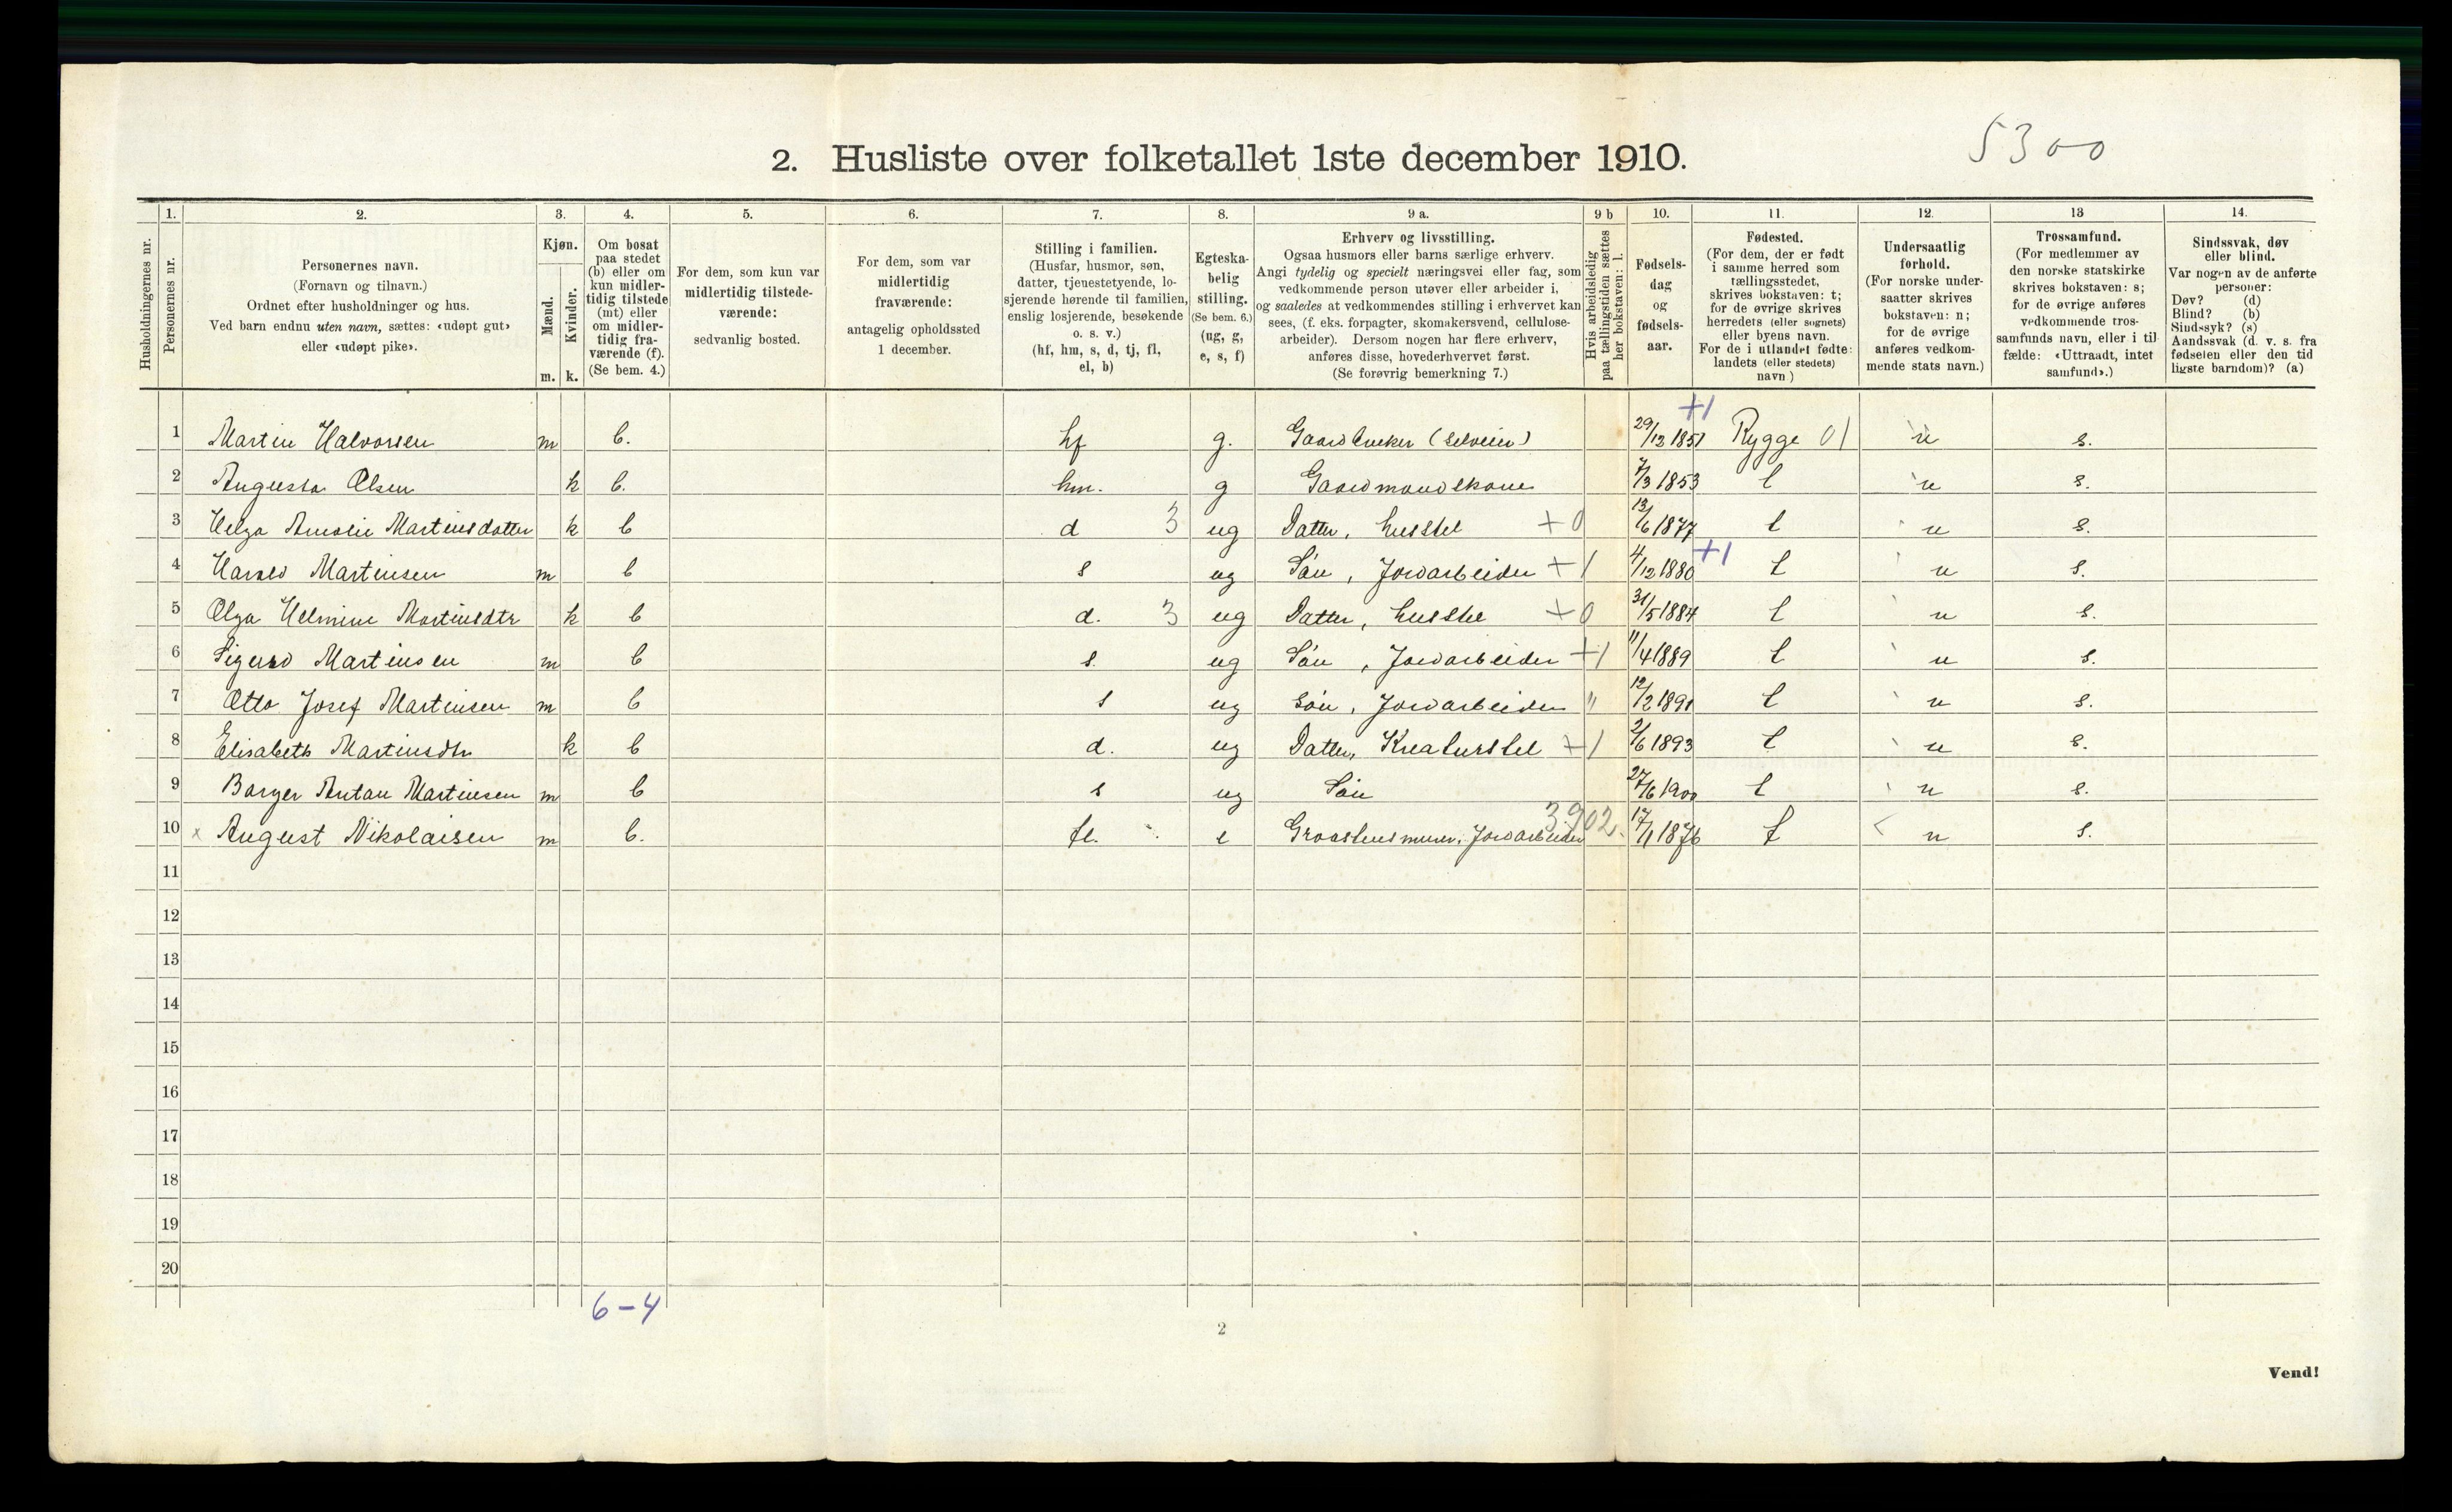 5300
2. Husliste over folketallet 1ste december 1910.
Husholdningernes nr.
1.
Personernes nr.
2.
Personernes navn.
(Fornavn og tilnavn.)
Ordnet efter husholdninger og hus.
Ved barn endnu uten navn, sættes: «udøpt gut»
eller «udøpt pike».
3.
Kjøn.
Mænd.
Kvinder.
m. k.
4.
Om bosat
paa stedet
(b) eller om
kun midler-
tidig tilstede
(mt) eller
om midler-
tidig fra-
værende (f).
(Se bem. 4.)
5.
For dem, som kun var
midlertidig tilstede-
værende:
sedvanlig bosted.
6.
For dem, som var
midlertidig
fraværende:
antagelig opholdssted
1 december.
7.
Stilling i familien.
(Husfar, husmor, søn,
datter, tjenestetyende, lo-
sjerende hørende til familien,
enslig losjerende, besøkende
o. s. v.)
(hf, hm, s, d, tj, fl,
el, b)
8.
Egteska-
belig
stilling.
(Se bem. 6.)
(ug, g,
e, s, f)
9 a.
Erhverv og livsstilling.
Ogsaa husmors eller barns særlige erhverv.
Angi tydelig og specielt næringsvei eller fag, som
vedkommende person utøver eller arbeider i,
og saaledes at vedkommendes stilling i erhvervet kan
sees, (f. eks. forpagter, skomakersvend, cellulose-
arbeider). Dersom nogen har flere erhverv,
anføres disse, hovederhvervet først.
(Se forøvrig bemerkning 7.)
9 b
Hvis arbeidsledig
paa tællingstiden sættes
her bokstaven: l.
10.
Fødsels-
dag
og
fødsels-
aar.
11.
Fødested.
(For dem, der er født
i samme herred som
tællingsstedet,
skrives bokstaven: t;
for de øvrige skrives
herredets (eller sognets)
eller byens navn.
For de i utlandet fødte:
landets (eller stedets)
navn.)
12.
Undersaatlig
forhold.
(For norske under-
saatter skrives
bokstaven: n;
for de øvrige
anføres vedkom-
mende stats navn.)
13
Trossamfund.
(For medlemmer av
den norske statskirke
skrives bokstaven: s;
for de øvrige anføres
vedkommende tros-
samfunds navn, eller i til-
fælde: «Uttraadt, intet
samfund».)
14.
Sindssvak, døv
eller blind.
Var nogen av de anførte
personer:
Døv? (d)
Blind? (b)
Sindssyk? (s)
Aandssvak (d. v. s. fra
fødselen eller den tid
ligste barndom)? (a)
+1
1 Martin Halvorsen m b. hf g. Gaardbruker (selveier) 29/12 1851 Rygge 01 n s.
2 Augusta Olsen k b. hm. g Gaardmandskone 7/3 1853 t n s.
3 Helga Amalie Martinsdatter k b d 3 ug Datter, husstel +0 13/6 1877 t n s.
+1
4 Harald Martinsen m b s ug Søn, Jordarbeider +1 4/12 1880 t n s.
5 Olga Helmine Martinsdtr k b d. 3 ug Datter, husstel +0 31/5 1884 t n s.
6 Sigurd Martinsen m b s. ug Søn, Jordarbeider +1 11/4 1889 t n s.
7 Otto Josef Martinsen m b s ug Søn, Jordarbeider " 12/2 1891 t n s.
8 Elisabeth Martinsdtr k b d. ug Datter, Kreaturstel +1 2/6 1893 t n s.
9 Borger Antan Martinsen m b s ug Søn 27/6 1900 t n s.
3902.
10 x August Nikolaisen m b. fl. e Graastensmurer, Jordarbeider 17/1 1876 t n s.
11
12
13
14
15
16
17
18
19
20
6-4
2
Vend!